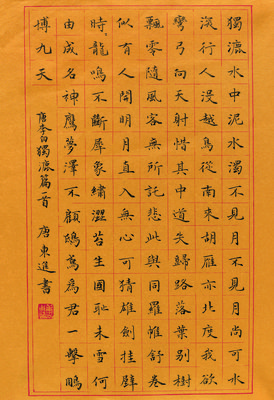 獨漉水中泥水濁不見月不見月尚可水
深行人沒越鳥從南來胡雁亦北度我欲
彎弓向天射惜其中道失歸路落葉別樹
飄零隨風客無所託悲此與同羅帷舒卷
似有人開明月直入無心可猜雄劍挂壁
時〻龍鳴不斷犀象繡澀苔生國恥未雪何
由成名神鷹夢澤不顧鴟鳶為君一擊鵬
搏九天
唐李白獨漉篇一首 唐東進書